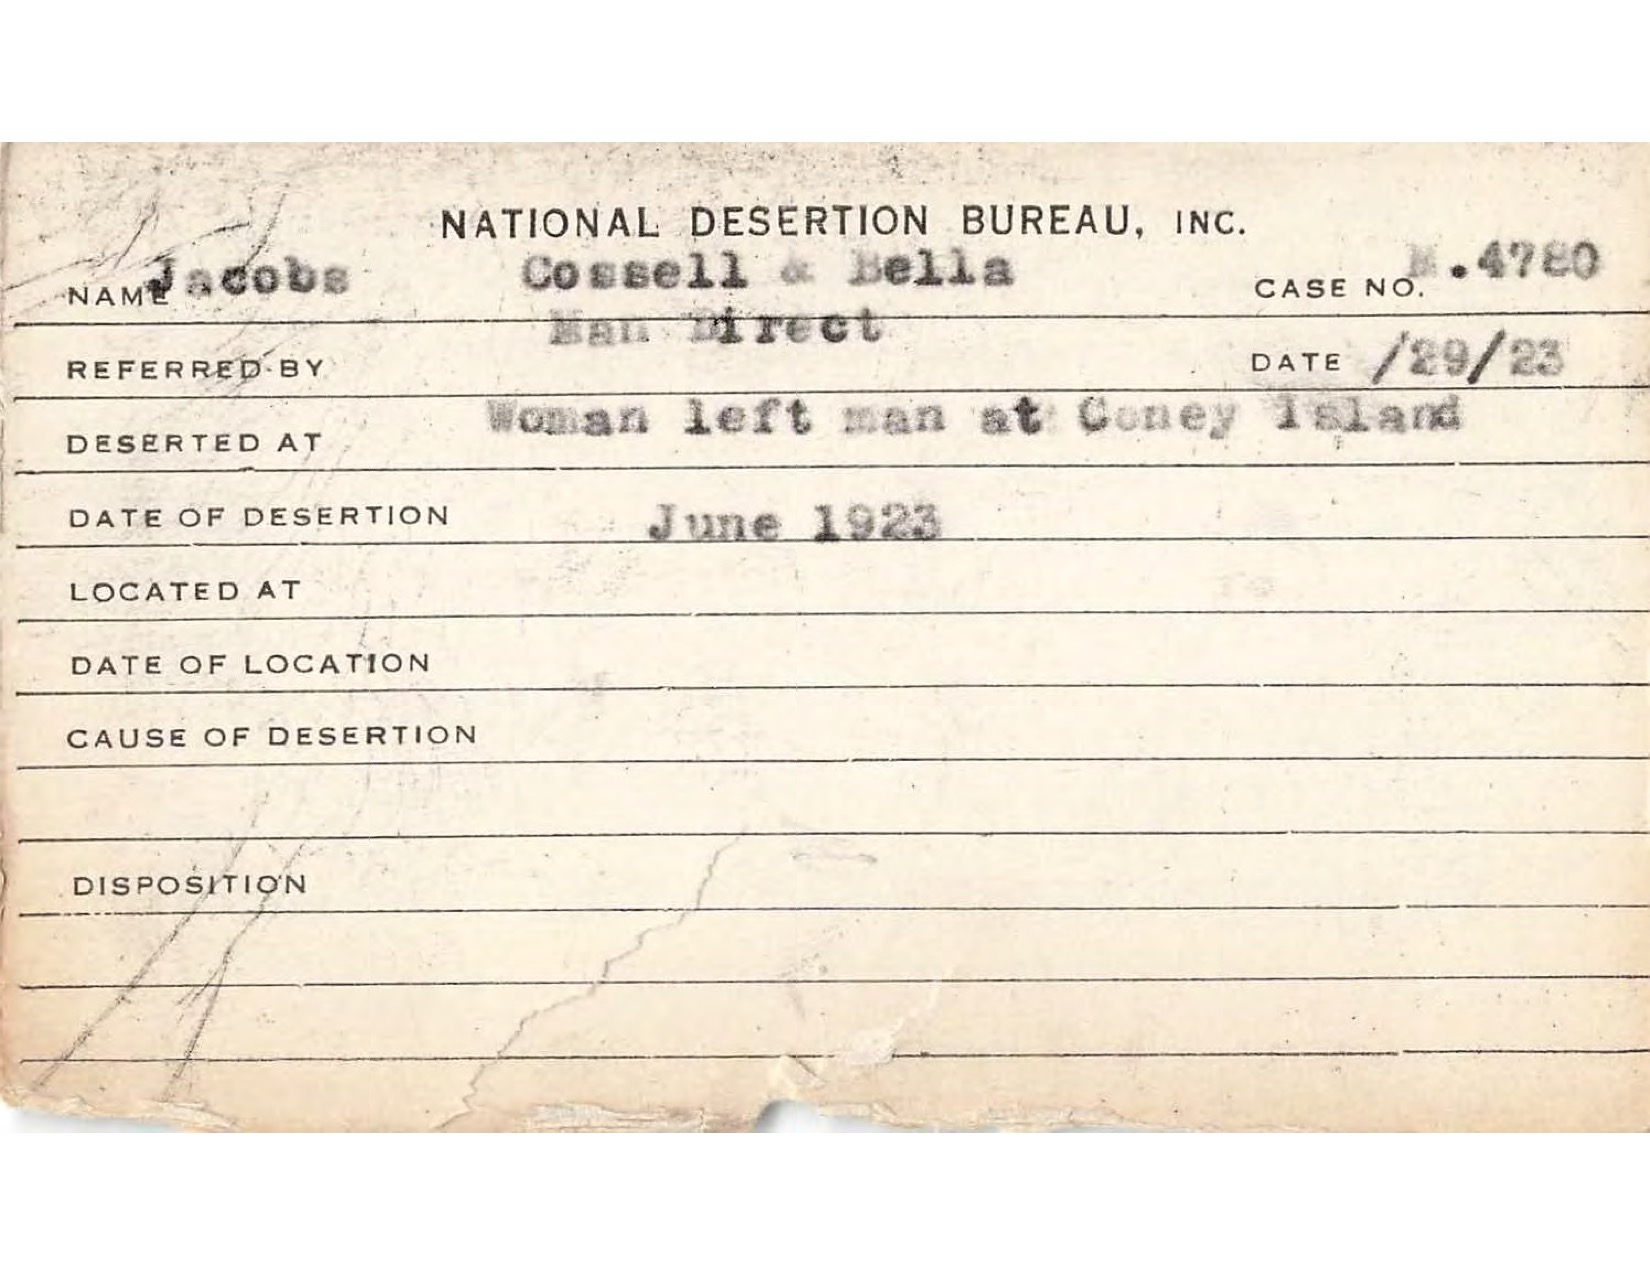 NATIONAL DESERTION BUREAU, INC.
NAME Jacobs Cossell & Bella CASE NO. .4780
Man Direct
REFERRED BY DATE /29/23
DESERTED AT Woman left man at Coney Island
DATE OF DESERTION June 1923
LOCATED AT
DATE OF LOCATION
CAUSE OF DESERTION
DISPOSITION